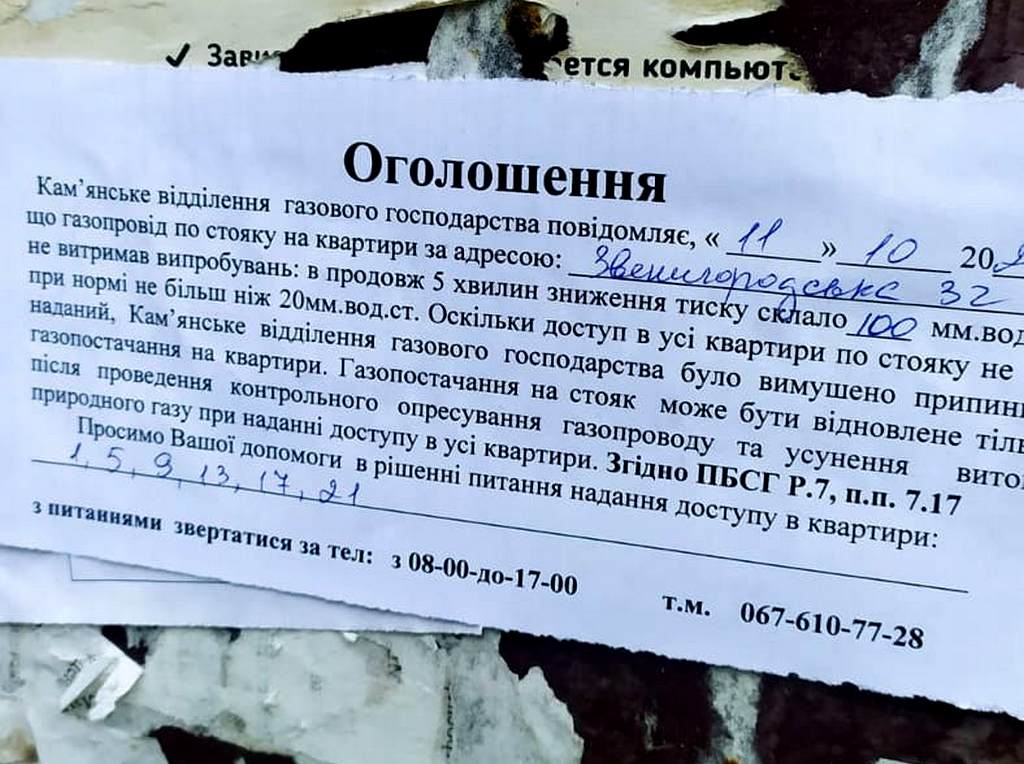 ✓ Зави ется компьют
Оголошення
Кам’янське відділення газового господарства повідомляє, « 11 » 10 202
що газопровід по стояку на квартири за адресою: Звенигородська 32
не витримав випробувань: в продовж 5 хвилин зниження тиску склало 100 мм.вод
при нормі не більш ніж 20мм.вод.ст. Оскільки доступ в усі квартири по стояку не
наданий, Кам’янське відділення газового господарства було вимушено припини
газопостачання на квартири. Газопостачання на стояк може бути відновлене тіль
після проведення контрольного опресування газопроводу та усунення вито
природного газу при наданні доступу в усі квартири. Згідно ПБСГ Р.7, п.п. 7.17
Просимо Вашої допомоги в рішенні питання надання доступу в квартири:
1, 5, 9, 13, 17, 21
з питаннями звертатися за тел: з 08-00-до-17-00 т.м. 067-610-77-28